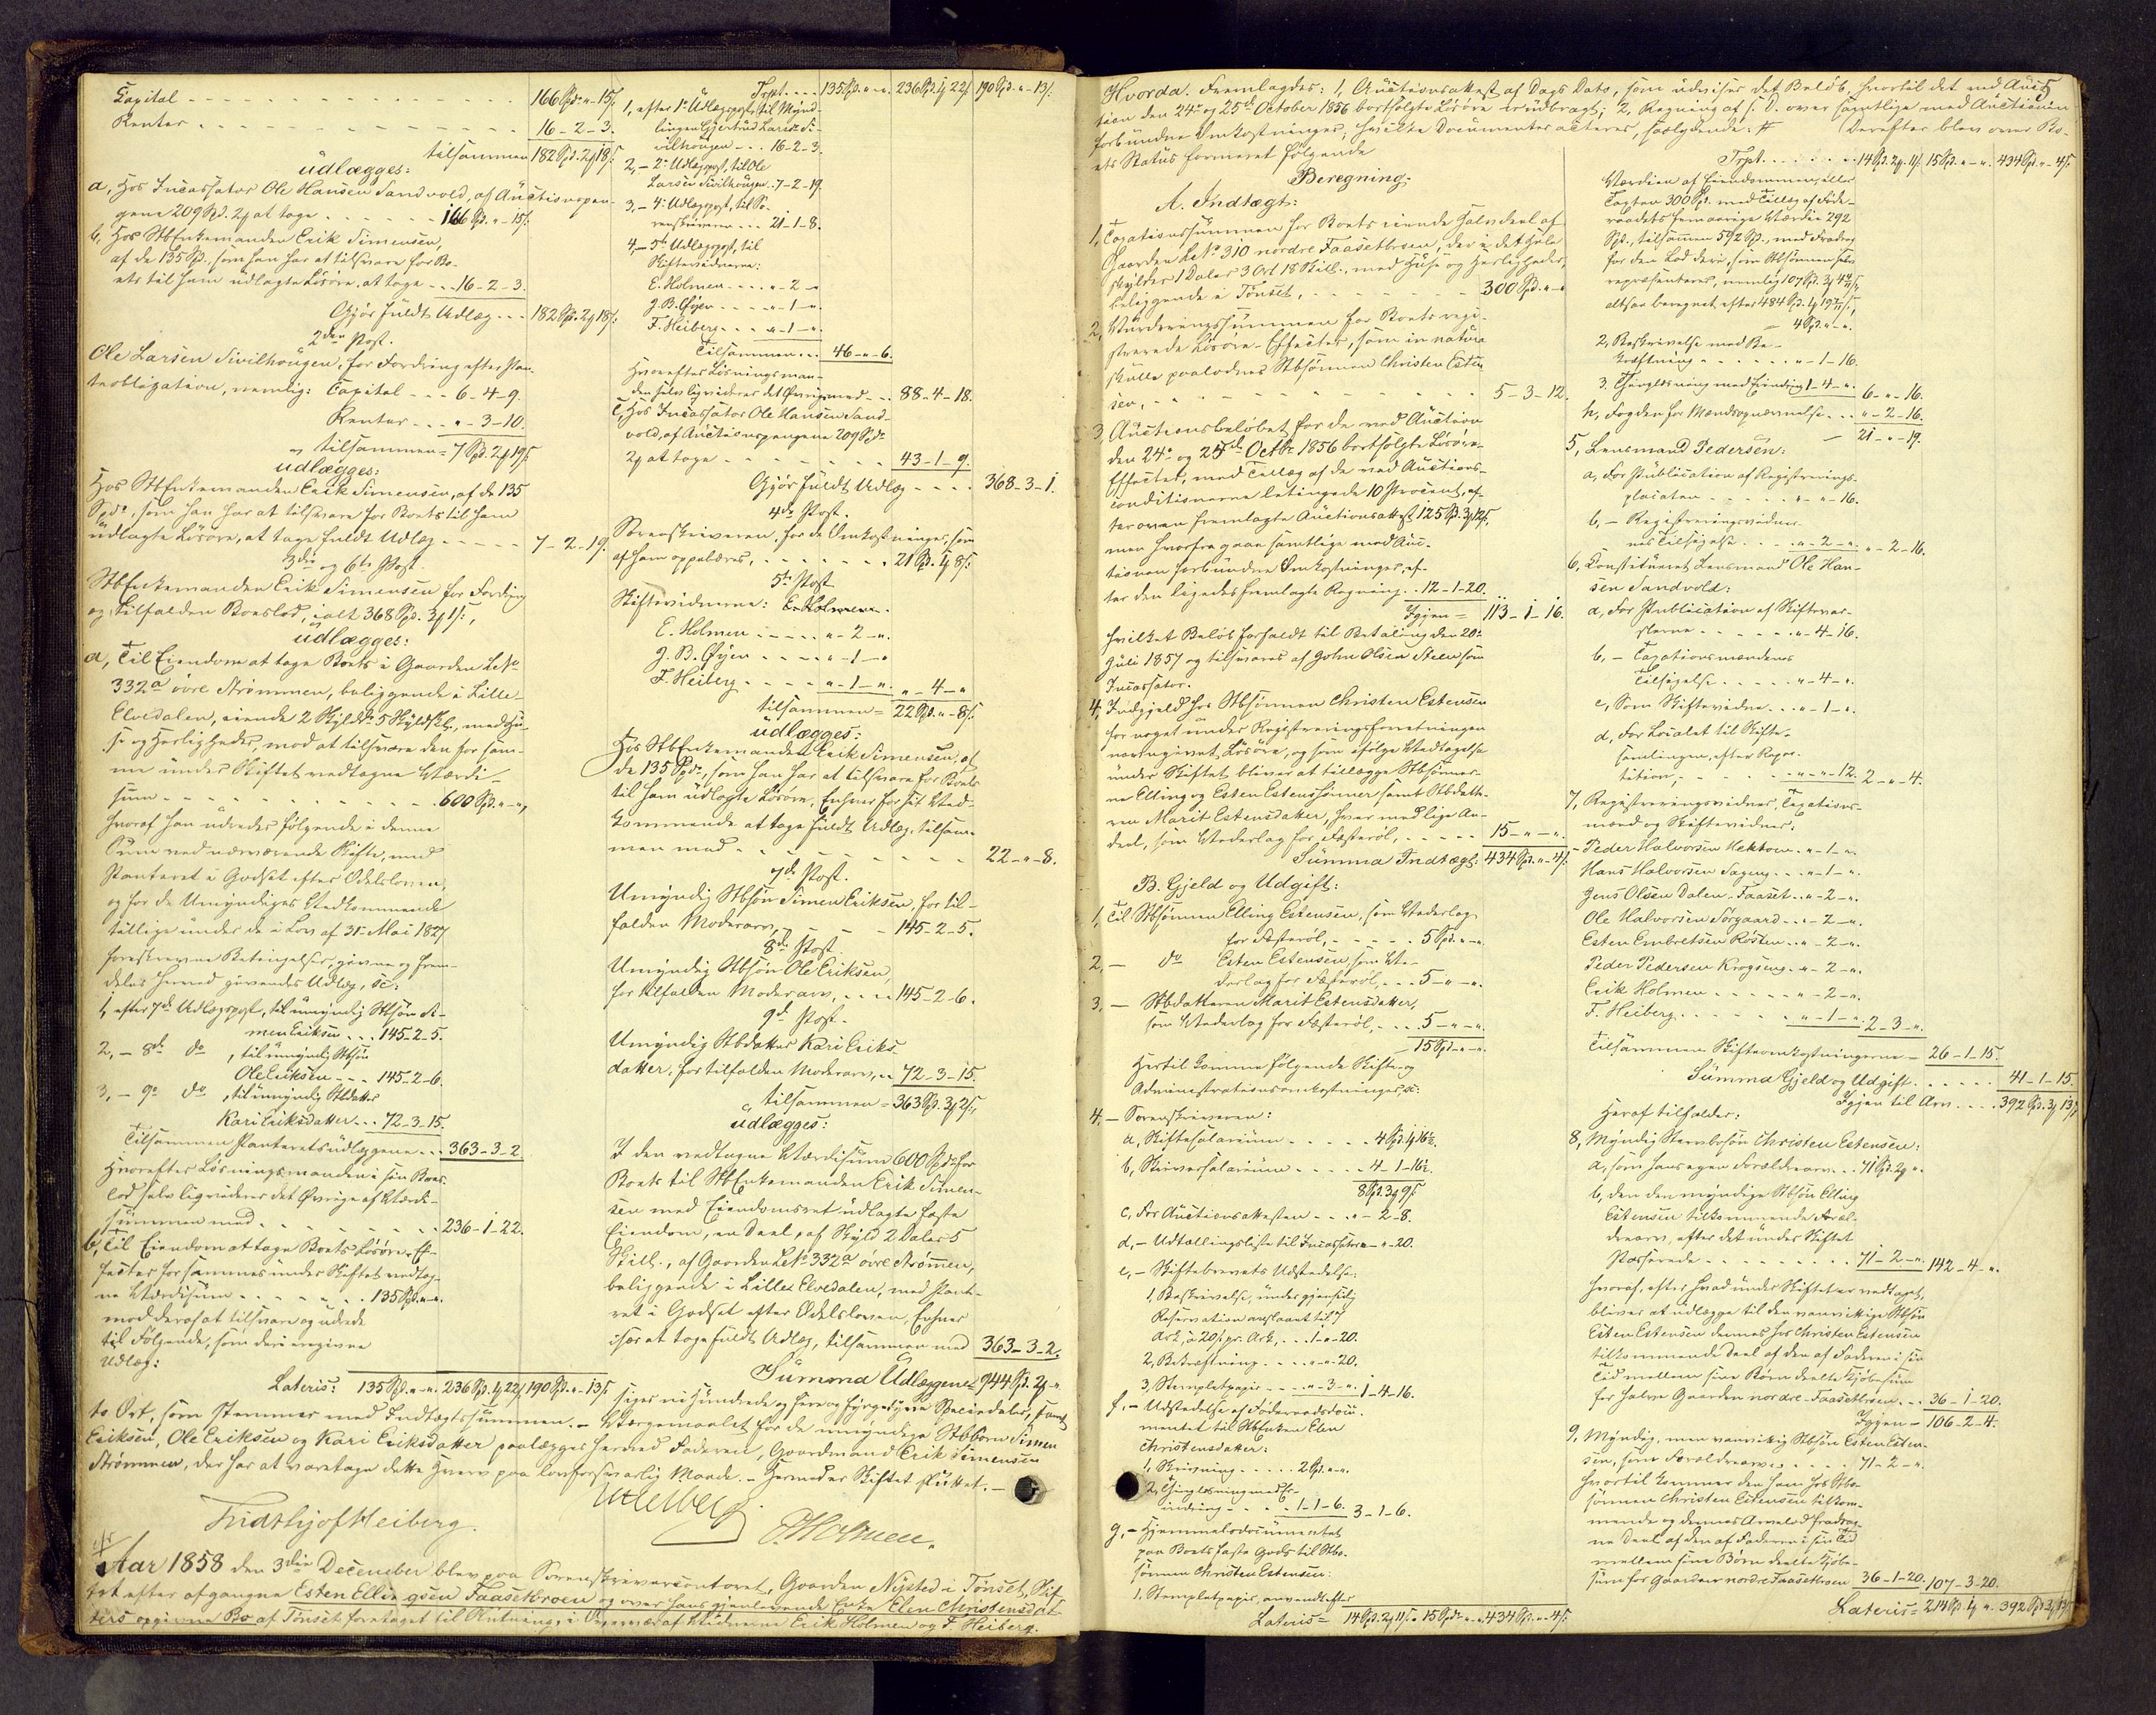 Capital - - - 166 Spd. „ - 15 s.
Renter - - - 16 - 2 - 3.
tilsammen 182 Spd. 2 18 s.
udlægges:
a, Hos Incassator Ole Hansen Sandvold, af Auctionspen-
gene 209 Spd. 2 at tage - - - 166 Spd. „ - 15 s.
b, Hos StbEnkemanden Erik Simensen,
af de 135 Spd., som han har at tilsvare for Bo-
ets til ham udlagte Løsøre, at tage - - - 16 - 2 - 3.
Gjør fuldt Udlæg - - - 182 Spd. 2 18 s.
2den Post.
Ole Larsen Sivilhougen, for Fordring efter Pan-
teobligation, nemlig: Capital - - - 6 - 4 - 9.
Renter - - - „ - 3 - 10.
tilsammen = 7 Spd. 2 19 s.
udlægges:
Hos StbEnkemanden Erik Simensen, af de 135
Spd., som han har at tilsvare for Boets til ham
udlagte Løsøre, at tage fuldt Udlæg - - - 7 - 2 - 19.
3die og 6te Post.
StbEnkemanden Erik Simensen for Fordring
og tilfalden Boeslod, ialt 368 Spd. 3 1 s.,
udlægges:
a, Til Eiendom at tage Boets i Gaarden LNo
332a øvre Strømmen, beliggende i Lille-
Elvedalen, eiende 2 Skyldd. 5 Skyldsk., med Hu-
se og Herligheder, mod at tilsvare den for sam-
me under Skiftet vedtagne Værdi-
sum - - - 600 Spd. „ - „
hvoraf han udreder følgende i denne
Sum ved nærværende Skifte, med
Panteret i Godset efter Odelsloven,
og for de Umyndiges Vedkommende
tillige under de i Lov af 31te Mai 1827
foreskrevne Betingelser, givne og frem-
deles herved givendes Udlæg, sc:
1, efter 7de Udlægspost, til umyndig Stbsøn Si-
men Eriksen - - - 145 - 2 - 5.
2, - 8de do, til umyndig Stbsøn
Ole Eriksen - - - 145 - 2 - 6.
3, - 9de do, til umyndig Stbdatter
Kari Eriksdatter - - - 72 - 3 - 15.
Tilsammen Panteretsudlæggene - - - 363 - 3 - 2.
Hvorefter Løsningsmanden i sin Boes-
lod selv liqviderer det Øvrige af Værdi-
summen med - - - 236 - 1 - 22.
b, Til Eiendom at tage Boets Løsøre-Ef-
fecter for sammes under Skiftet vedtag-
ne Værdisum - - - 135 Spd. „ - „.
mod deraf at tilsvare og udrede
til Følgende, som deri ergivne
Udlæg:
Lateris: 135 Spd. „ - „. 236 Spd. 1 22 s. 190 Spd. „ - 13 s.
Trpt. - - - 135 Spd. „ - „. 236 Spd. 1 22 s. 190 Spd. „ - 13 s.
1, efter 1ste Udlægspost, til Mynd-
lingen Gjertrud Larsdr. Si-
vilhougen - - - 16 - 2 - 3.
2, - 2den Udlægspost, til Ole
Larsen Sivilhougen - - 7 - 2 - 19.
3, - 4de Udlægspost, til So-
renskriveren - - - 21 - 1 - 8.
4, - 5te Udlægspost, til
Skiftevidnerne:
E. Holmen - - - „ - 2 - „
J. B. Øyen - - - „ - 1 - „
F. Heiberg - - - „ - 1 - „.
Tilsammen - - - 46 - „ - 6.
Hvorefter Løsningsman-
den selv liqviderer det Øvrige med - - - 88 - 4 - 18.
c, Hos Incassator Ole Hansen Sand-
vold, af Auctionspengene 209 Spd.
2 at tage - - - 43 - 1 - 9.
Gjør fuldt Udlæg - - - 368 - 3 - 1.
4de Post.
Sorenskriveren, for de Omkostninger, som
af ham oppebæres, - - - 21 Spd. 1 8 s.
5te Post.
Skiftevidnerne: E. Holmen
E. Holmen - - - „ - 2 - „.
J. B. Øyen - - - „ - 1 - „
F. Heiberg - - - „ - 1 - „. „ - 4 - „
tilsammen = 22 Spd. „ - 8 s.
udlægges:
Hos StbEnkemanden Erik Simensen, af
de 135 Spd., som han har at tilsvare for Boets
til ham udlagte Løsøre, Enhver for sit Ved-
kommende at tage fuldt Udlæg, tilsam-
men med - - - 22 - „ - 8.
7de Post.
Umyndig Stbsøn Simen Eriksen, for til-
falden Moderarv, - - - 145 - 2 - 5.
8de Post.
Umyndig Stbsøn Ole Eriksen,
for tilfalden Moderarv, - - - 145 - 2 - 6.
9de Post.
Umyndig Stbdatter Kari Eriks-
datter, for tilfalden Moderarv, - - 72 - 3 - 15.
tilsammen = 363 Spd. 3 2 s.,
udlægges:
I den vedtagne Værdisum 600 Spd. for
Boets til StbEnkemanden Erik Simen-
sen med Eiendomsret udlagte faste
Eiendom, en Deel, af Skyld 2 Daler 5
Skill., af Gaarden LNo 332a øvre Strømmen,
beliggende i Lille Elvedalen, med Pant-
ret i Godset efter Odelsloven, Enhver
især at tage fuldt Udlæg, tilsammen med 363 - 3 - 2.
Summa Udlæggene = 944 Spd. 2 - „
siger ni Hundrede og fire og fyrgetyve Speciedaler, samt
to Ort, som stemmer med Indtægtssummen. - Værgemaalet for de umyndige Stbbørn Simen
Eriksen, Ole Eriksen og Kari Eriksdatter paalægges herved Faderen, Gaardmand Erik Simensen
Strømmen, der har at varetage dette Hverv paa lovforsvarlig Maade. - Hermed er Skiftet sluttet. -
Heiberg
Fridthjof Heiberg.
E. Holmen.
Aar 1858 den 3die December blev paa Sorenskrivercontoret, Gaarden Nysted i Tønset, Skif-
tet efter afgangne Esten Ellingsen Faasetbroen og over hans gjenlevende Enke Elen Christensdat-
ters opgivne Bo af Tønset foretaget til Slutning, i Overvær af Vidnerne Erik Holmen og F. Heiberg.
Hvorda. Fremlagdes: 1, Auctionsattest af Dags Dato, som udviser det Beløb, hvortil det ved Auc-
tion den 24de og 25de October 1856 bortsolgte Løsøre er udbragt; 2, Regning af s. D. over samtlige med Auctionen
forbundne Omkostninger, hvilke Documenter acteres, saalydende: # Derefter blev over Bo-
ets Status formeret følgende
Beregning:
A. Indtægt:
1, Taxationssummen for Boets eiende Halvdeel af
Gaarden LNo 310 nordre Faasetbroen, der i det Hele
skylder 1 Daler 3 Ort 18 Skill., med Huse og Herligheder,
beliggende i Tønset, - - - 300 Spd. „ - „
2, Vurderingssummen for Boets regi-
strerede Løsøre-Effecter, som in natura
skulle paalodnes Stbsønnen Christen Esten-
sen, - - - 5 - 3 - 12.
3, Auctionsbeløbet for de ved Auction
den 24de og 25de Octbr. 1856 bortsolgte Løsøre-
Effecter, med Tillæg af de ved Auctions-
conditionerne betingede 10 Procent, ef-
ter oven fremlagte Auctionsattest 125 Spd. 3 12 s.,
men hvorfra gaar samtlige med Auc-
tionen forbundne Omkostninger, ef-
ter den ligeledes fremlagte Regning - - 12 - 1 - 20.
Igjen = 113 - 1 - 16.
hvilket Beløb forfaldt til Betaling den 20de
Juli 1857 og tilsvares af John Olsen Steen som
Incassator.
4, Indgjeld hos Stbsønnen Christen Estensen
for noget under Registreringsforretningen
uangivet Løsøre, og som ifølge Vedtagelse
under Skiftet bliver at tillægge Stbsønner-
ne Elling og Esten Estenssønner samt Stbdatte-
ren Marit Estensdatter, hver med lige An-
deel, som Vederlag for Fæsterøl, - - - 15 - „ - „.
Summa Indtægt: 434 Spd. „ - 4 s.
B. Gjeld og Udgift:
1, Til Stbsønnen Elling Estensen, som Vederlag
for Fæsterøl, - - - 5 Spd. „ - „.
2, - do Esten Estensen, som Ve-
derlag for Fæsterøl, - - - 5 - „ - „.
3, - Stbdatteren Marit Estensdatter,
som Vederlag for Fæsterøl, - - - 5 - „ - „.
15 Spd. „ - „.
Hertil komme følgende Skifte- og
Administrationsomkostninger, sc:
4, - Sorenskriveren:
a, Skiftesalarium - - - 4 Spd. 1 16½.
b, Skriversalarium - - - 4 - 1 - 16½.
8 Spd. 3 9 s.
c, For Auctionsattesten - - - „ - 2 - 8.
d, - Udtællingsliste til Incassator „ - „ - 20.
e, - Skiftebrevets Udstedelse:
1, Beskrivelse, under gjensidig
Reservation anslaaet til 7
Ark, à 20 s. pr. Ark, - - - 1 - „ - 20.
2, Bekræftning - - - „ - „ - 20.
3, Stemplet papir - - - „ - 3 - „. 1 - 4 - 16.
f, - Udstedelse af Føderaadsdocu-
mentet til StbEnken Elen
Christensdatter:
1, Skrivning - - - 2 Spd. „ - „.
2, Thinglæsning med Er-
indring - - - 1 - 1 - 6. 3 - 1 - 6.
g, - Hjemmelsdocumentet
paa Boets faste Gods til Stb-
sønnen Christen Estensen:
1, Stemplet papir, anvendt efter
Lateris = 14 Spd. 2 11 s. 15 Spd. „ - „. 434 Spd. „ - 4 s.
Trpt. - - - 14 Spd. 2 11 s. 15 Spd. „ - „. 434 Spd. „ - 4 s.
Værdien af Eiendommen, eller
Taxten 300 Spd. med Tillæg af Føde-
raadets femaarige Værdie 292
Spd., tilsammen 592 Spd., med Fradrag
for den Lod deri, som Stbsønnen selv
repræsenterer, nemlig 107 Spd. 3
altsaa beregnet efter 484 Spd. 1
4 Spd. „ - „.
2, Beskrivelse med Be-
kræftning - - - „ - 1 - 16.
3, Thinglæsning med Erindring 1 - 4 - „. 6 - „ - 16.
h, Fogden for Mændsopnævnelse - - - „ - 2 - 16.
21 - „ - 19.
5, Lensmand Pedersen:
a, For Publication af Registrerings-
placaten - - - „ - „ - 16.
b, - Registreringsvidner-
nes Tilsigelse - - - „ - 2 - „. „ - 2 - 16.
6, Constitueret Lensmand Ole Han-
sen Sandvold:
a, For Publication af Skiftevar-
slerne - - - „ - 4 - 16.
b, - Taxationsmændenes
Tilsigelse - - - „ - 4 - „.
c, Som Skiftevidne - - - „ - 1 - „.
d, For Localet til Skifte-
samlingen, efter Repar-
tition, - - - „ - „ - 12. 2 - „ - 4.
7, Registreringsvidner, Taxations-
mænd og Skiftevidner:
Peder Halvorsen Hektoen - - „ - 1 - „.
Hans Halvorsen Fageng - - „ - 1 - „.
Jens Olsen Dalen-Faaset - - „ - 2 - „.
Ole Halvorsen Sørgaard - - „ - 2 - „.
Esten Embretsen Røsten - - „ - 2 - „.
Peder Pedersen Krogeng - - „ - 2 - „.
Erik Holmen - - - „ - 2 - „.
F. Heiberg - - - „ - 1 - „. 2 - 3 - „.
Tilsammen Skifteomkostningerne - 26 - 1 - 15.
Summa Gjeld og Udgift - - - 41 - 1 - 15.
Igjen til Arv - - - 392 Spd. 3 13 s.
Heraf tilfalder:
8, Myndig Stervbosøn Christen Estensen:
a, som hans egen Fædrenearv - - - 71 Spd. 2 „.
b, den den myndige Stbsøn Elling
Estensen tilkommende Fæd-
renearv, efter det under Skiftet
Passerede - - - 71 - 2 - „. 142 - 4 - „.
hvoraf, efter hvad under Skiftet er vedtaget,
bliver at udlægge til den vanvittige Stbsøn
Esten Estensen dennes hos Christen Estensen
tilkommende Deel af den af Faderen i sin
Tid mellem sine Børn deelte Kjøbesum
for halve Gaarden nordre Faasetbroen - - - 36 - 1 - 20.
Igjen - 106 - 2 - 4.
9, Myndig, men vanvittig Stbsøn Esten Esten-
sen, som Fædrenearv - - - 71 - 2 - „.
hvortil kommer den ham hos Stb-
sønnen Christen Estensen tilkom-
mende og dennes Arvelod fradrag-
ne Deel af den af Faderen i sin Tid
mellem sine Børn deelte Kjøbe-
sum for Gaarden nordre Faasetbroen 36 - 1 - 20. 107 - 3 - 20.
Lateris = 214 Spd. 1 „. 392 Spd. 3 13 s.